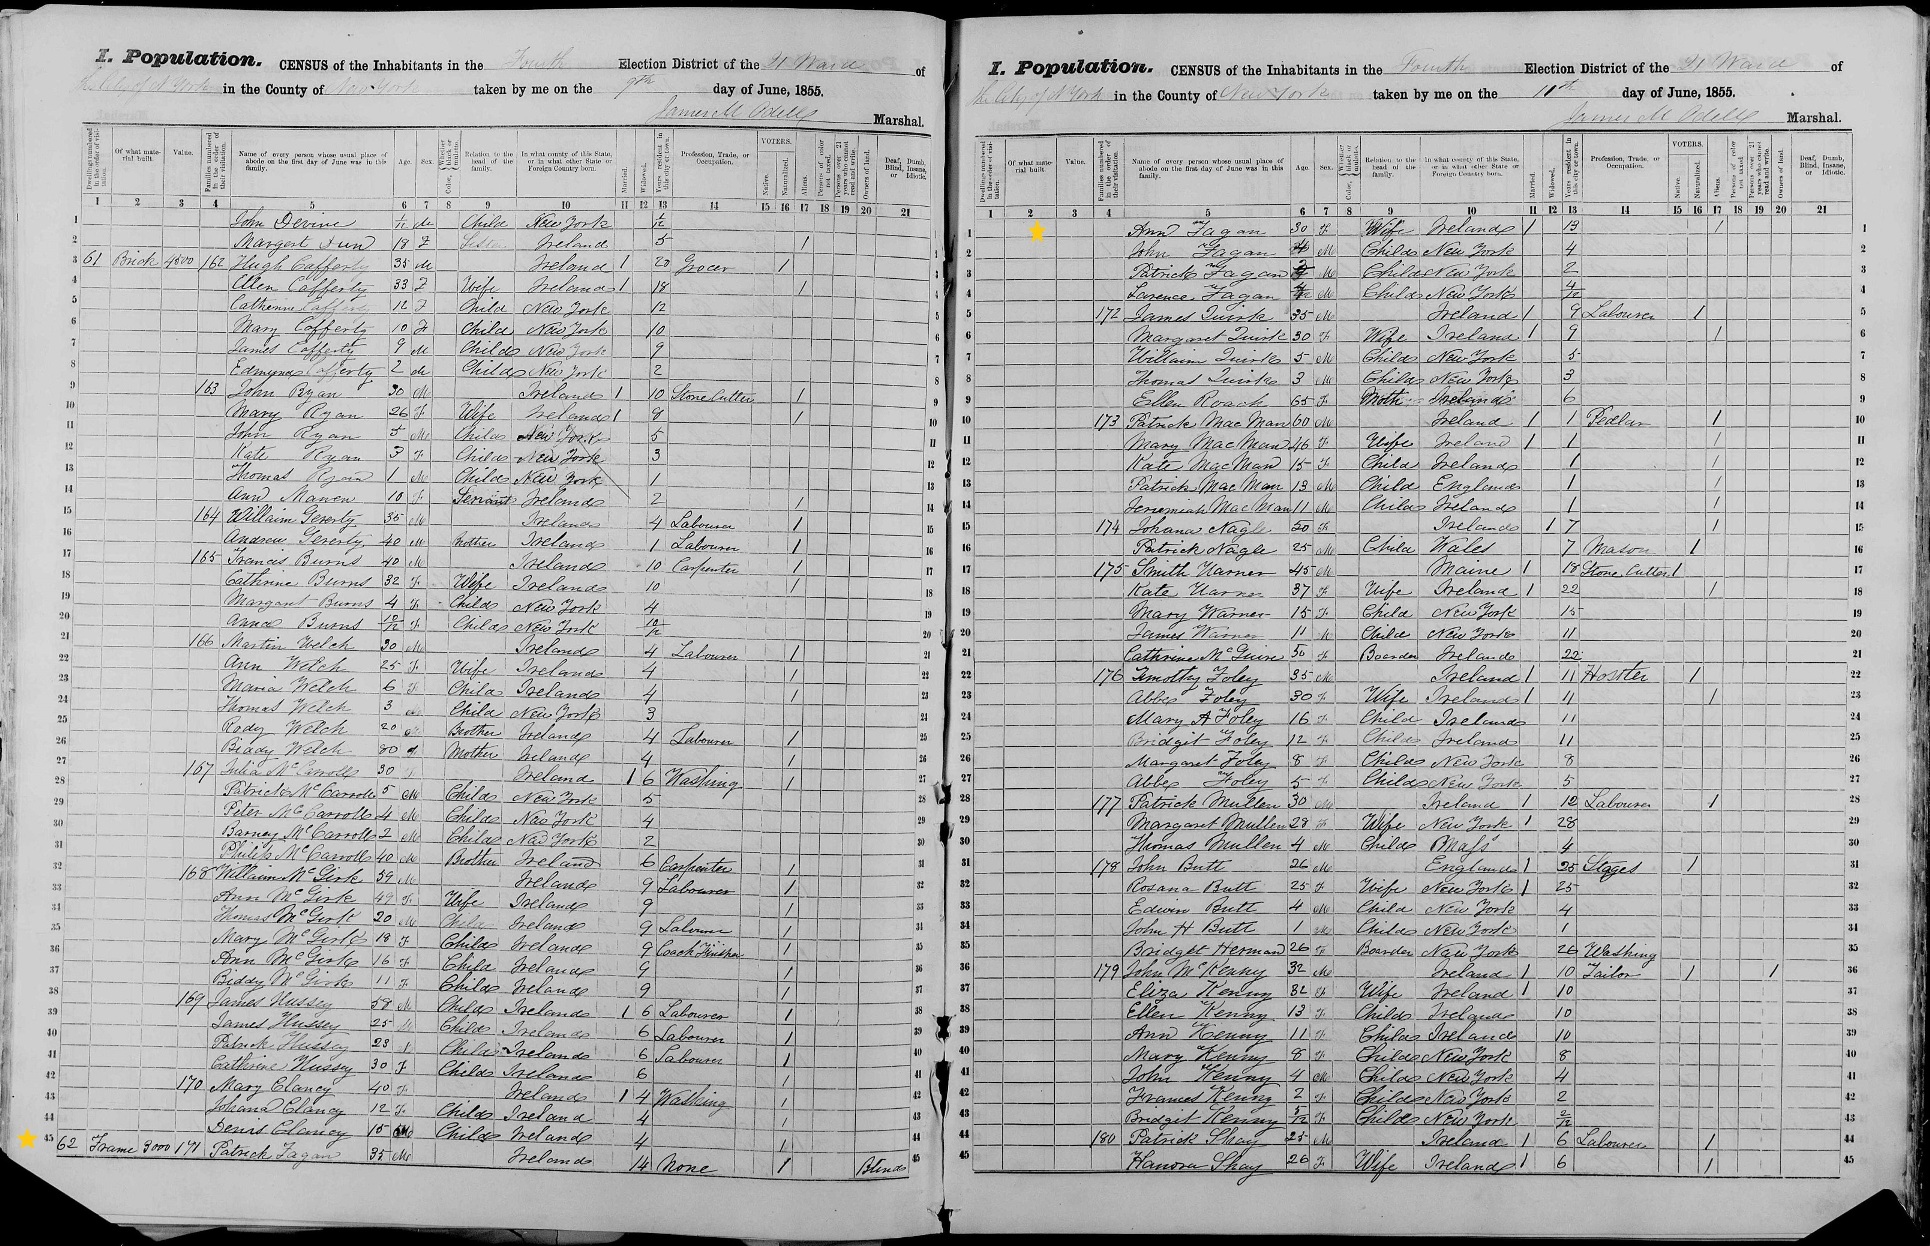 I. Population. CENSUS of the Inhabitants in the Fourth Election District of the 21 Ward of
the City of N York in the County of New York taken by me on the 9th day of June, 1855.
James M Odell Marshal.
Dwellings numbered in the order of visitation. Of what material built. Value. Families numbered in the order of their visitation. Name of every person whose usual place of abode on the first day of June was in this family. Age. Sex. Color, Whether black or mulatto. Relation to the head of the family. In what county of this State, or in what other State or Foreign Country born. Married. Widowed. Years resident in this city or town. Profession, Trade, or Occupation. VOTERS. Native. Naturalized. Aliens. Persons of color not taxed. Persons over 21 years who cannot read and write. Owners of land. Deaf, Dumb, Blind, Insane, or Idiotic.
1 2 3 4 5 6 7 8 9 10 11 12 13 14 15 16 17 18 19 20 21
1 John Devine M Child New York
2 Margert Dun 18 F Ireland 5 1
3 61 Brick 4500 162 Hugh Cafferty 35 M Ireland 1 20 Grocer 1
4 Cafferty 33 F Wife Ireland 1 18 1
5 Catherine Cafferty 12 F Child New York 12
6 Mary Cafferty 10 F Child New York 10
7 James Cafferty 9 M Child New York 9
8 Edmund Cafferty 2 M Child New York 2
9 163 John Ryan 30 M Ireland 1 10 Stone Cutter 1
10 Mary Ryan 26 F Wife Ireland 1 8 1
11 John Ryan 5 M Child New York 5
12 Kate Ryan 3 F Child New York 3
13 Thomas Ryan 1 M Child New York 1
14 Ann Manen 10 F Servant Ireland 2 1
15 164 Willaim Gererty 35 M Ireland 4 Labourer 1
16 Andrew Gererty 40 M Ireland 1 Labourer 1
17 165 Francis Burns 40 M Ireland 10 Carpenter 1
18 Cathrine Burns 32 F Wife Ireland 10 1
19 Margart Burns 4 F Child New York 4
20 Burns 10/12 F Child New York 10/12
21 166 Martin Welch 30 M Ireland 4 Labourer 1
22 Ann Welch 25 F Wife Ireland 4 1
23 Maria Welch 6 F Child Ireland 4 1
24 Thomas Welch 3 Child New York 3
25 Rody Welch 20 Brother Ireland 4 Labourer 1
26 Biddy Welch 80 Mother Ireland 4 1
27 167 Julia McCarroll 30 F Ireland 1 6 Washing 1
28 Patrick McCarroll 5 M Child New York 5
29 Peter McCarroll 4 M Child New York 4
30 Barney McCarroll 2 M Child New York 2
31 Philip McCarroll 40 M Brother Ireland 6 Carpenter 1
32 168 Willaim McGirk 59 M Ireland 9 Labourer 1
33 Ann McGirk 49 F Wife Ireland 9 1
34 Thomas McGirk 20 M Child Ireland 9 Labourer 1
35 Mary McGirk 18 F Child Ireland 9 Coach Finisher 1
36 Ann McGirk 16 F Child Ireland 9 1
37 Biddy McGirk 11 F Child Ireland 9 1
38 169 James Hussey 58 M Child Ireland 1 6 Labourer 1
39 James Hussey 25 M Child Ireland 6 Labourer 1
40 Patrick Hussey 23 Child Ireland 6 Labourer 1
41 Cathrine Hussey 30 F Child Ireland 6 1
42 170 Mary Clancy 40 F Ireland 1 4 Washing 1
43 Johana Clancy 12 F Child Ireland 4 1
44 Denis Clancy 15 M Child Ireland 4 1
45 62 Frame 3000 171 Patrick Fagan 35 M Ireland 14 None 1 Blind
I. Population. CENSUS of the Inhabitants in the Fourth Election District of the 21 Ward of
the City of N York in the County of New York taken by me on the 11th day of June, 1855.
James M Odell Marshal.
Dwellings numbered in the order of visitation. Of what material built. Value. Families numbered in the order of their visitation. Name of every person whose usual place of abode on the first day of June was in this family. Age. Sex. Color, Whether black or mulatto. Relation to the head of the family. In what county of this State, or in what other State or Foreign Country born. Married. Widowed. Years resident in this city or town. Profession, Trade, or Occupation. VOTERS. Native. Naturalized. Aliens. Persons of color not taxed. Persons over 21 years who cannot read and write. Owners of land. Deaf, Dumb, Blind, Insane, or Idiotic.
1 2 3 4 5 6 7 8 9 10 11 12 13 14 15 16 17 18 19 20 21
1 Ann Fagan 30 F Wife Ireland 1 13 1
2 John Fagan 4 M Child New York 4
3 Patrick Fagan 2 M Child New York 2
4 Larence Fagan 4/12 M Child New York 4/12
5 172 James Quirk 35 M Ireland 1 9 Labourer 1
6 Margaret Quirk 30 F Wife Ireland 1 9 1
7 Willaim Quirk 5 M Child New York 5
8 Thomas Quirk 3 M Child New York 3
9 Ellen Roach 65 F Moth Ireland 6
10 173 Patrick MacMan 60 M Ireland 1 1 Pedlar 1
11 Mary MacMan 46 F Wife Ireland 1 1 1
12 Kate MacMan 15 F Child Ireland 1 1
13 Patrick MacMan 13 M Child England 1 1
14 Jeremiah MacMan 11 M Child Ireland 1 1
15 174 Johana Nagle 50 F Ireland 1 7 1
16 Patrick Nagle 25 M Child Wales 7 Mason 1
17 175 Smith Warner 45 M Maine 1 18 Stone Cutter 1
18 Kate Warner 37 F Wife Ireland 1 22 1
19 Mary Warner 15 F Child New York 15
20 James Warner 11 M Child New York 11
21 Cathrine McGuire 50 F Boarder Ireland 22
22 176 Timothy Foley 35 M Ireland 1 11 Hostler 1
23 Abbe Foley 30 F Wife Ireland 1 11 1
24 Mary A Foley 16 F Child Ireland 11
25 Bridgit Foley 12 F Child Ireland 11
26 Margaret Foley 8 F Child New York 8
27 Abbe Foley 5 F Child New York 5
28 177 Patrick Mullen 30 M Ireland 1 12 Labourer 1
29 Margaret Mullen 28 F Wife New York 1 28
30 Thomas Mullen 4 M Child Mass 4
31 178 John Butt 26 M England 1 25 Stages 1
32 Rosana Butt 25 F Wife New York 1 25
33 Edwin Butt 4 M Child New York 4
34 John H Butt 1 M Child New York 1
35 Bridget Herman 26 F Boarder New York 26 Washing
36 179 John McKenny 32 M Ireland 1 10 Tailor 1 1
37 Eliza Kenny 32 F Wife Ireland 1 10
38 Ellen Kenny 13 F Child Ireland 10
39 Ann Kenny 11 F Child Ireland 10
40 Mary Kenny 8 F Child New York 8
41 John Kenny 4 M Child New York 4
42 Frances Kenny 2 F Child New York 2
43 Bridgit Kenny F Child New York
44 180 Patrick Shay 25 M Ireland 1 6 Labourer 1
45 Hanora Shay 26 F Wife Ireland 1 6 1